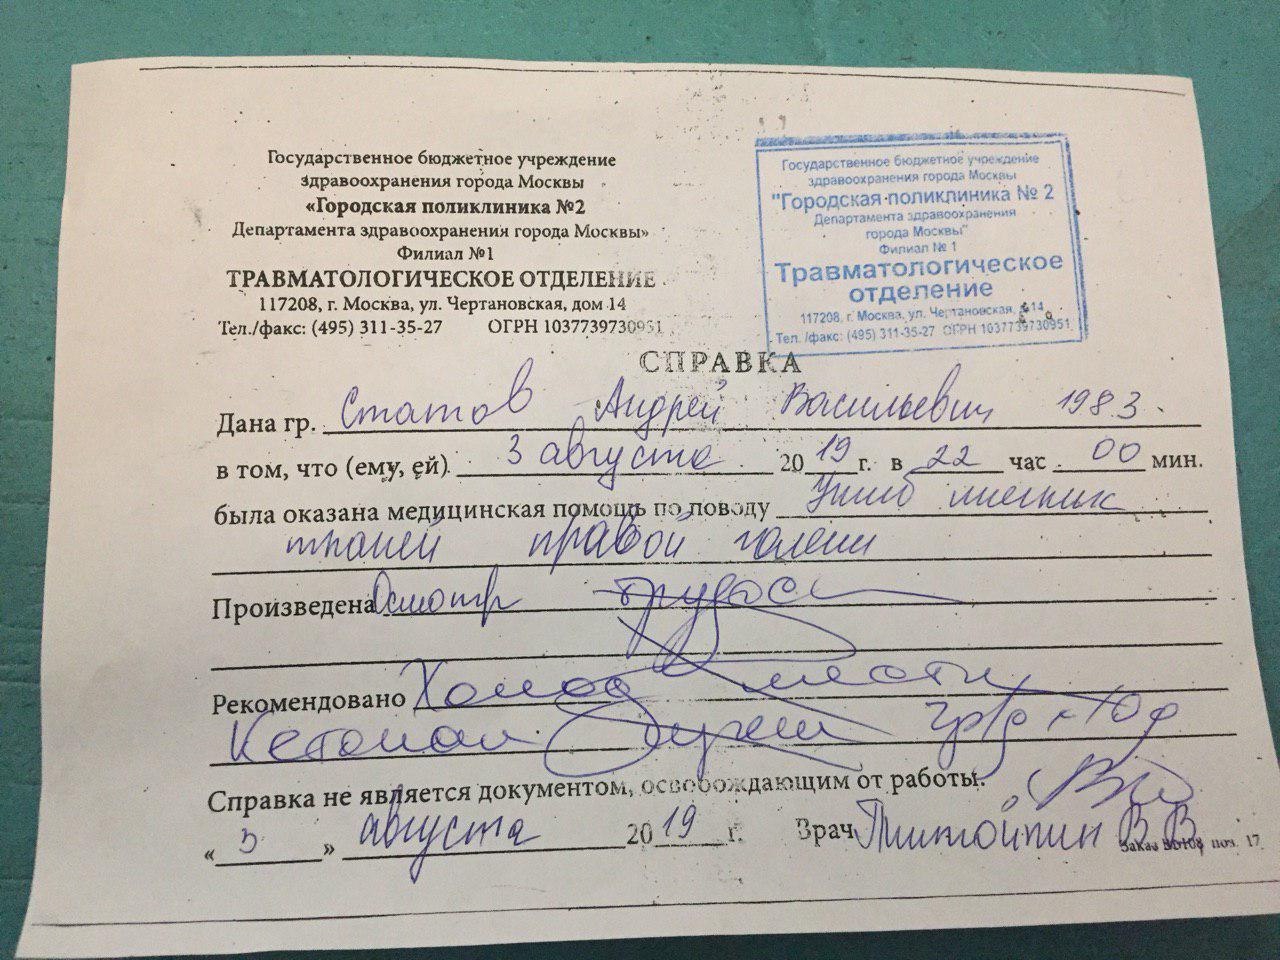 Государственное бюджетное учреждение
здравоохранения города Москвы
«Городская поликлиника №2
Департамента здравоохранения города Москвы»
Филиал №1
ТРАВМАТОЛОГИЧЕСКОЕ ОТДЕЛЕНИЕ
117208, г. Москва, ул. Чертановская, дом 14
Тел./факс: (495) 311-35-27 ОГРН 1037739730951
Государственное бюджетное учреждение
здравоохранения города Москвы
"Городская поликлиника № 2
Департамента здравоохранения
города Москвы"
Филиал № 1
Травматологическое
отделение
117208, г. Москва, ул. Чертановская, д.14
Тел. /факс: (495) 311-35-27 ОГРН 1037739730951
СПРАВКА
Дана гр. Статов Андрей Васильевич 1983.
в том, что (ему, ей) 3 августа 2019 г. в 22 час 00 мин.
была оказана медицинская помощь по поводу Ушиб мягких
тканей правой голени
Произведена Осмотр
Рекомендовано Холод местно
Кетонал
Справка не является документом, освобождающим от работы.
«3» августа 2019 г. Врач В В
Заказ поз. 17